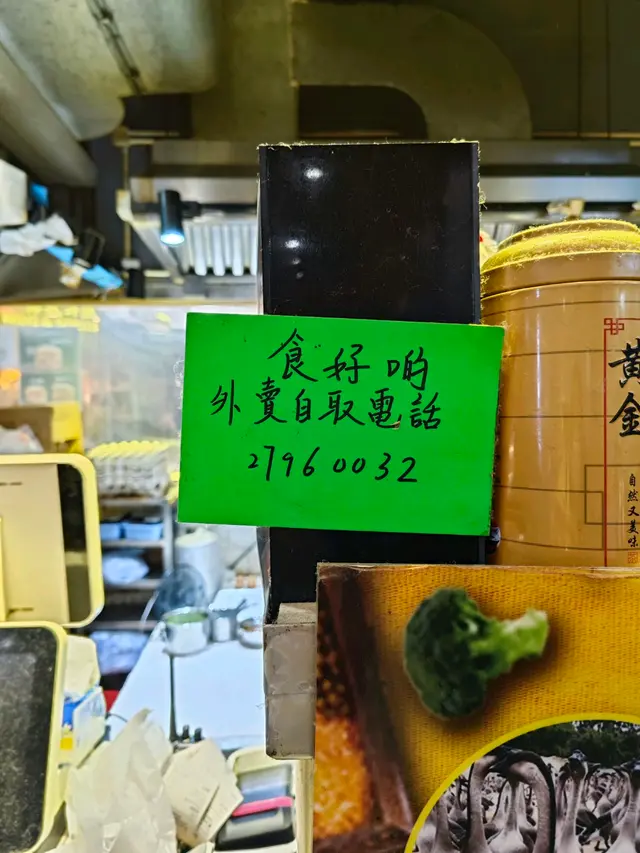 食好啲
外賣自取電話
27960032
黃金
自然又美味